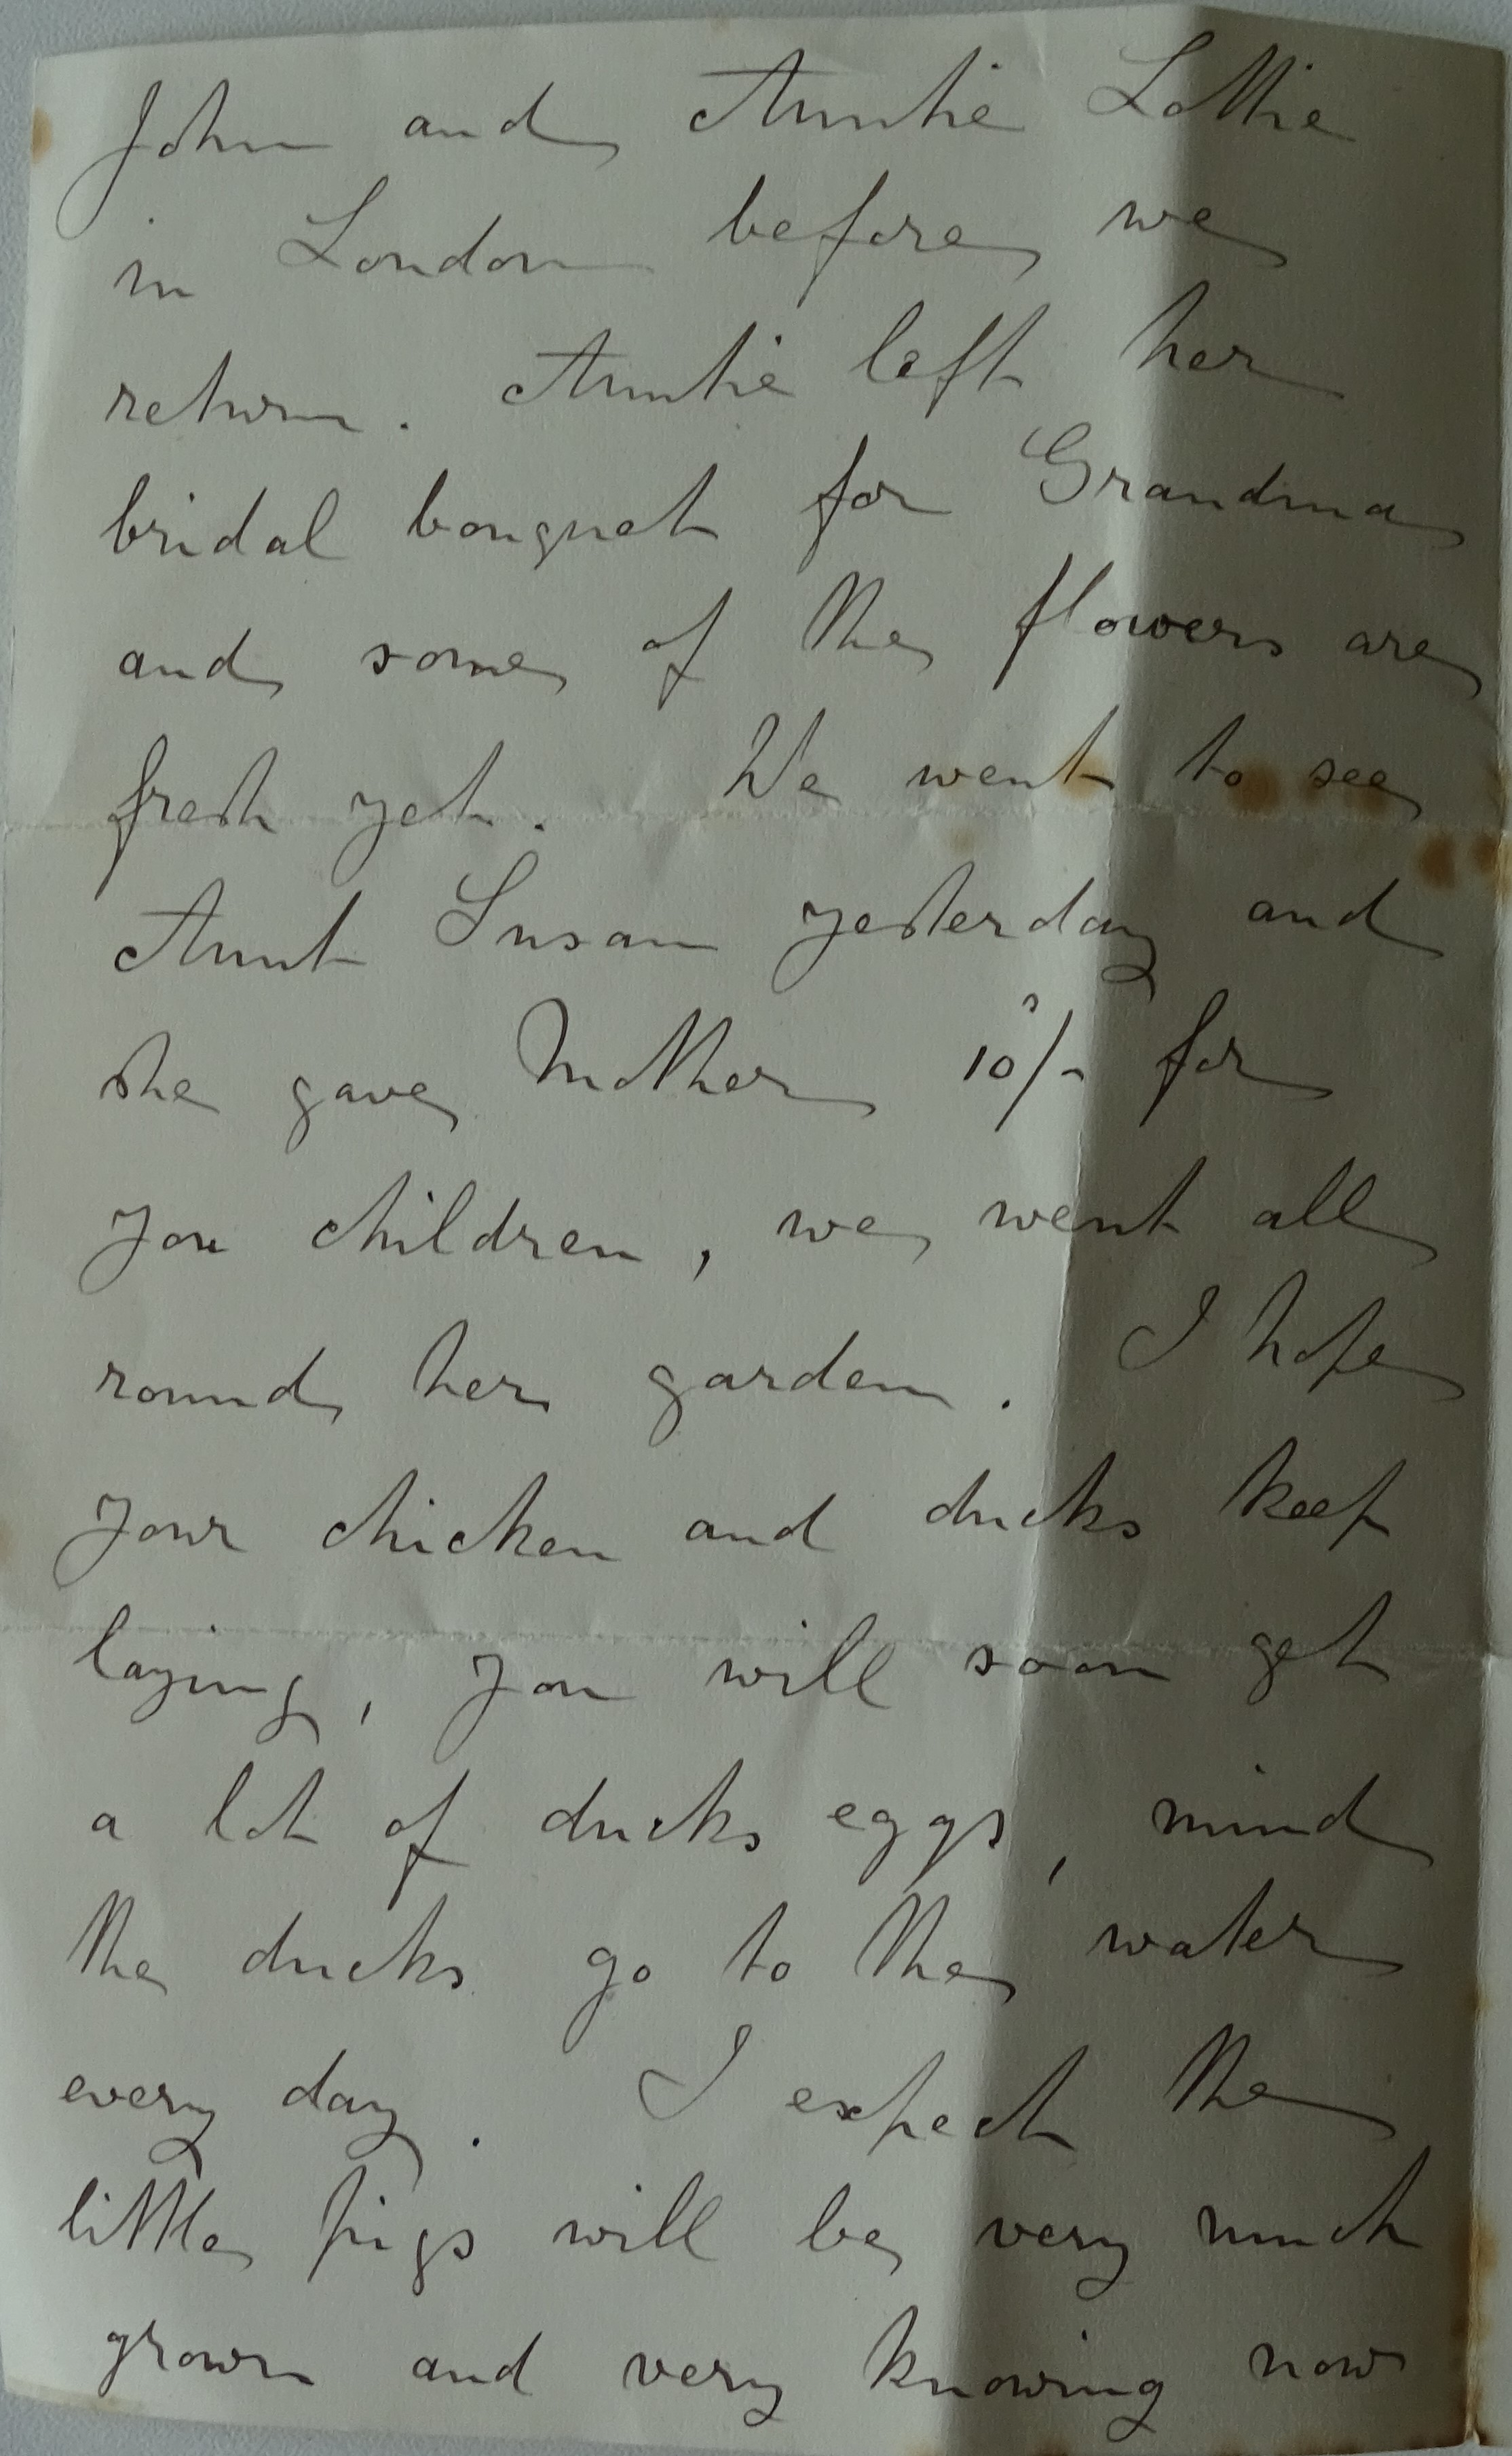 John and Auntie Lottie
in London before we
return. Auntie left her
bridal bouquet for Grandma
and some of the flowers are
fresh yet. We went to see
Aunt Susan yesterday and
she gave Mother 10s/- for
you children, we went all
round her garden. I hope
your chicken and ducks keep
laying, you will soon get
a lot of ducks eggs, mind
the ducks go to the water
every day. I expect the
little pigs will be very much
grown and very knowing now